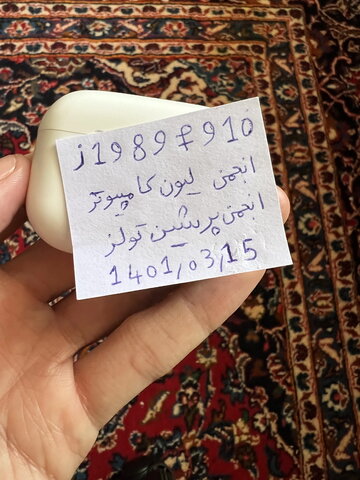 j1989f910
انجمن لیون کامپیوتر
انجمن پرشین تولز
1401/03/15